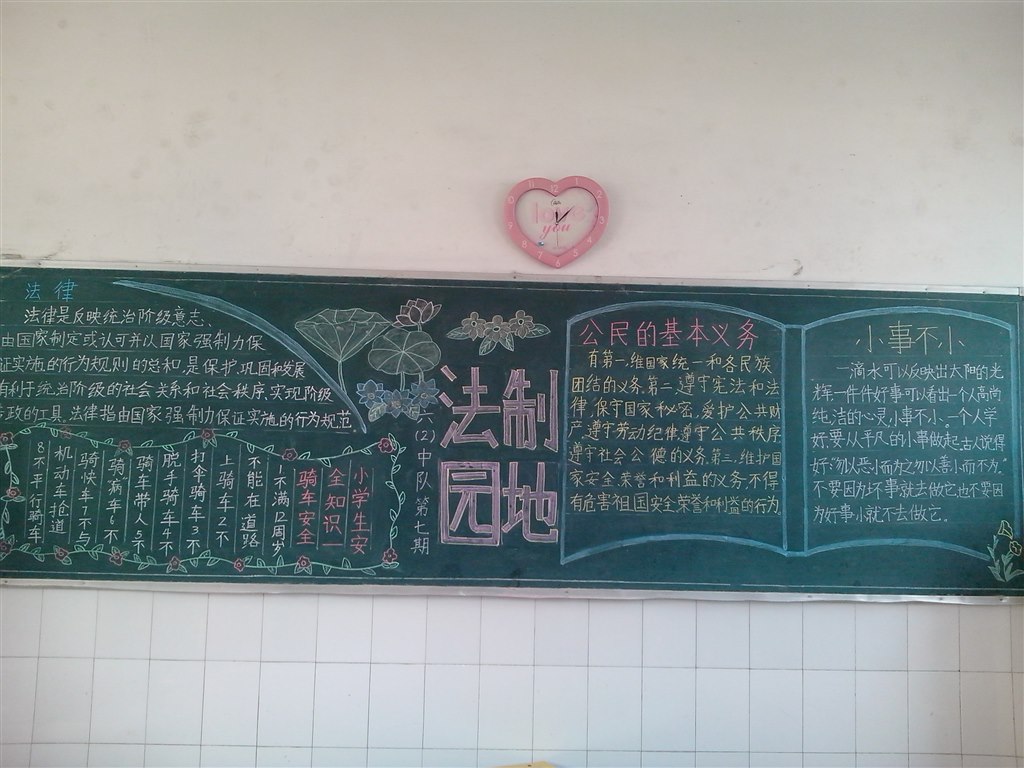 法律
法律是反映统治阶级意志、
由国家制定或认可并以国家强制力保
证实施的行为规则的总和,是保护、巩固和发展
有利于统治阶级的社会关系和社会秩序,实现阶级
专政的工具.法律指由国家强制力保证实施的行为规范
小学生安
全知识一
骑车安全
1不满12周岁
不能在道路
上骑车2不
打伞骑车3不
脱手骑车4不
骑车带人5不
骑"病"车6不
骑快车7不与
机动车抢道
8不平行骑车
六(2)中队第七期
法制
园地
公民的基本义务
有第一.维国家统一和各民族
团结的义务.第二.遵守宪法和法
律.保守国家秘密.爱护公共财
产遵守劳动纪律遵守公共秩序
遵守社会公德的义务.第三.维护国
家安全.荣誉和利益的义务.不得
有危害祖国安全荣誉和利益的行为
小事不小
一滴水可以反映出太阳的光
辉.一件件好事可以看出一个人高尚
纯洁的心灵.小事不小.一个人学
好.要从平凡的小事做起.古人说得
好:"勿以恶小而为之勿以善小而不为."
不要因为坏事就去做它.也不要因
为好事小就不去做它。
11 12 1 2 3 4 5 6 7 8 9
love
you